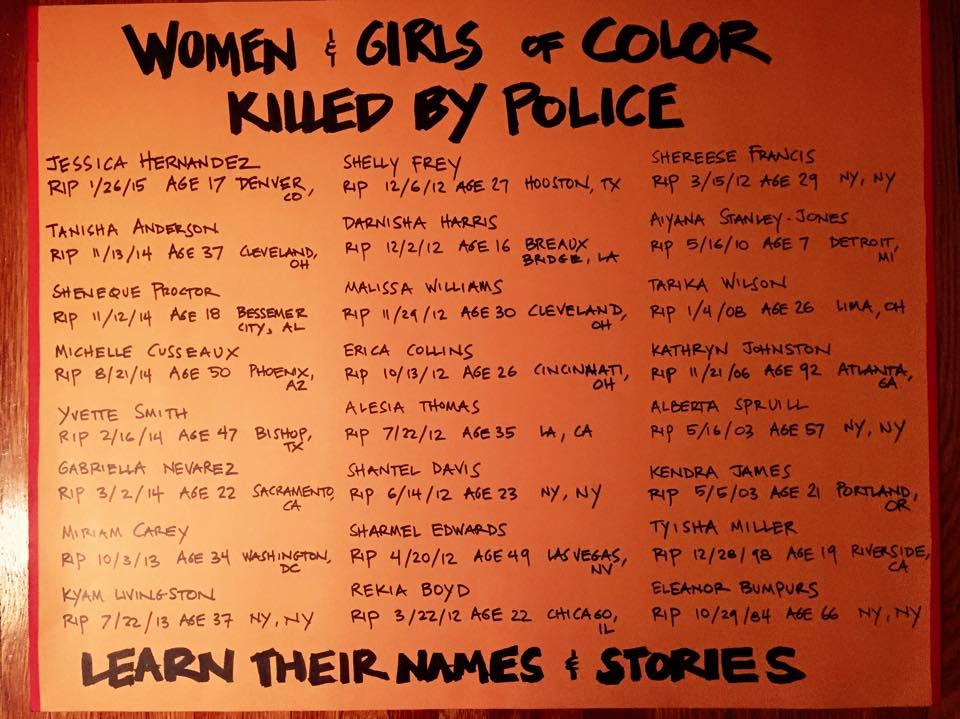 WOMEN & GIRLS OF COLOR
KILLED BY POLICE
JESSICA HERNANDEZ
RIP 1/26/15 AGE 17 DENVER,
CO
TANISHA ANDERSON
RIP 11/13/14 AGE 37 CLEVELAND,
OH
SHENEQUE PROCTOR
RIP 11/12/14 AGE 18 BESSEMER
CITY, AL
MICHELLE CUSSEAUX
RIP 8/21/14 AGE 50 PHOENIX,
AZ
YVETTE SMITH
RIP 2/16/14 AGE 47 BISHOP,
TX
GABRIELLA NEVAREZ
RIP 3/2/14 AGE 22 SACRAMENTO,
CA
MIRIAM CAREY
RIP 10/3/13 AGE 34 WASHINGTON,
DC
KYAM LIVINGSTON
RIP 7/22/13 AGE 37 NY, NY
SHELLY FREY
RIP 12/6/12 AGE 27 HOUSTON, TX
DARNISHA HARRIS
RIP 12/2/12 AGE 16 BREAUX
BRIDGE, LA
MALISSA WILLIAMS
RIP 11/29/12 AGE 30 CLEVELAND,
OH
ERICA COLLINS
RIP 10/13/12 AGE 26 CINCINNATI,
OH
ALESIA THOMAS
RIP 7/22/12 AGE 35 LA, CA
SHANTEL DAVIS
RIP 6/14/12 AGE 23 NY, NY
SHARMEL EDWARDS
RIP 4/20/12 AGE 49 LAS VEGAS,
NV
REKIA BOYD
RIP 3/22/12 AGE 22 CHICAGO,
IL
SHEREESE FRANCIS
RIP 3/15/12 AGE 29 NY, NY
AIYANA STANLEY-JONES
RIP 5/16/10 AGE 7 DETROIT,
MI
TARIKA WILSON
RIP 1/4/08 AGE 26 LIMA, OH
KATHRYN JOHNSTON
RIP 11/21/06 AGE 92 ATLANTA,
GA
ALBERTA SPRUILL
RIP 5/16/03 AGE 57 NY, NY
KENDRA JAMES
RIP 5/5/03 AGE 21 PORTLAND,
OR
TYISHA MILLER
RIP 12/28/98 AGE 19 RIVERSIDE,
CA
ELEANOR BUMPURS
RIP 10/29/84 AGE 66 NY, NY
LEARN THEIR NAMES & STORIES